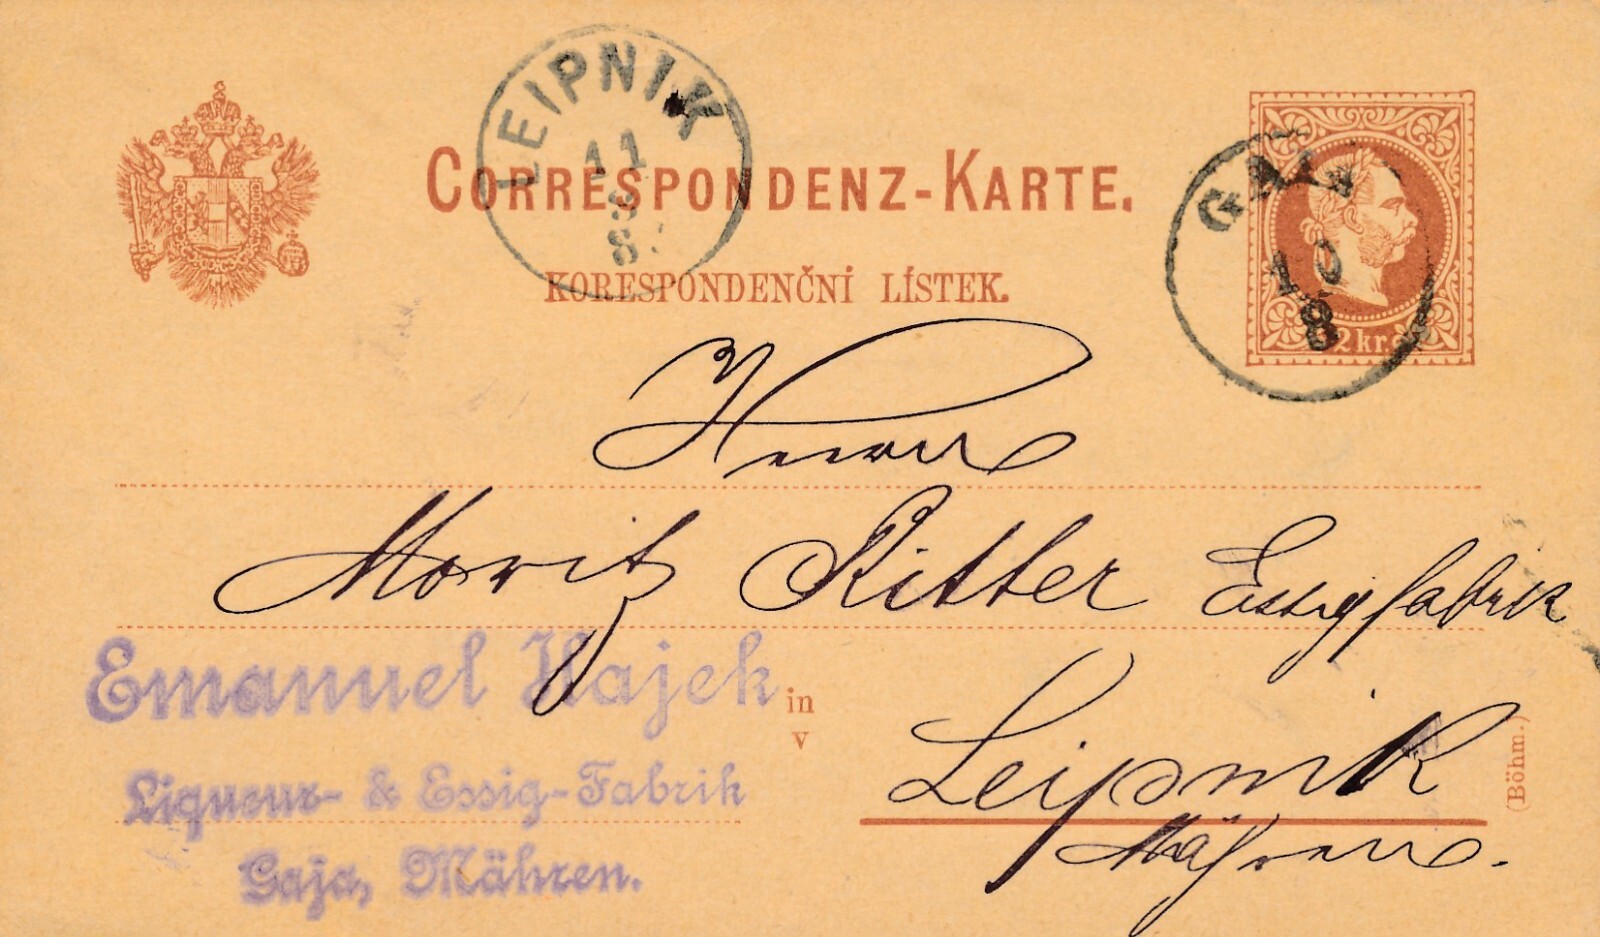 LEIPNIK
11
8
CORRESPONDENZ-KARTE.
KORESPONDENČNÍ LÍSTEK.
10
8
2 kr.
Herrn
Moritz Ritter Essigfabrik
Emanuel Hajek
in
v
Leipnik
(Böhm.)
Liqueur- & Essig-Fabrik
Mähren.
Gaja, Mähren.